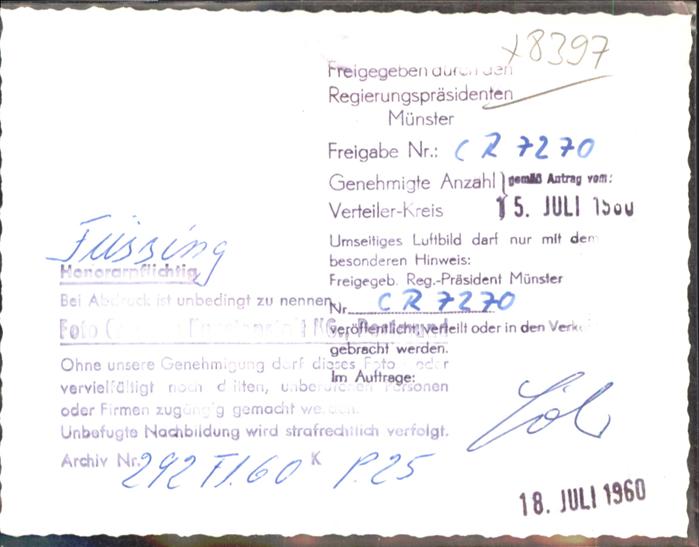 x8397
Freigegeben durch den
Regierungspräsidenten
Münster
Freigabe Nr.: CR 7270
Genehmigte Anzahl } gemäß Antrag vom:
Verteiler-Kreis 15. JULI 1960
Umseitiges Luftbild darf nur mit dem
besonderen Hinweis:
Freigegeb. Reg.-Präsident Münster
Nr. CR 7270
veröffentlicht, verteilt oder in den Verke
gebracht werden.
Im Auftrage:
Füssing
Honorarpflichtig
Bei Abdruck ist unbedingt zu nennen
Foto
Ohne unsere Genehmigung darf dieses Foto oder
vervielfältigt noch dritten, unberufenen Personen
oder Firmen zugängig gemacht werden.
Unbefugte Nachbildung wird strafrechtlich verfolgt.
Archiv Nr. 292 K P.25
18. JULI 1960